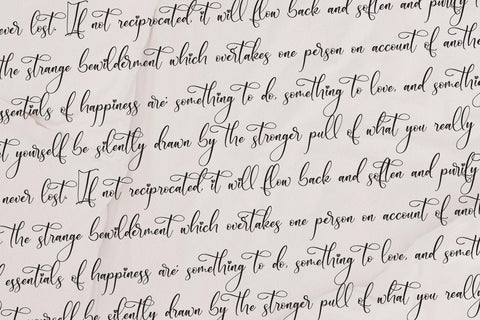 never lost. If not reciprocated, it will flow back and soften and purify t
the strange bewilderment which overtakes one person on account of anothe
essentials of happiness are: something to do, something to love, and somethin
t yourself be silently drawn by the stronger pull of what you really
never lost. If not reciprocated, it will flow back and soften and purify
the strange bewilderment which overtakes one person on account of anot
essentials of happiness are: something to do, something to love, and some
yourself be silently drawn by the stronger pull of what you really